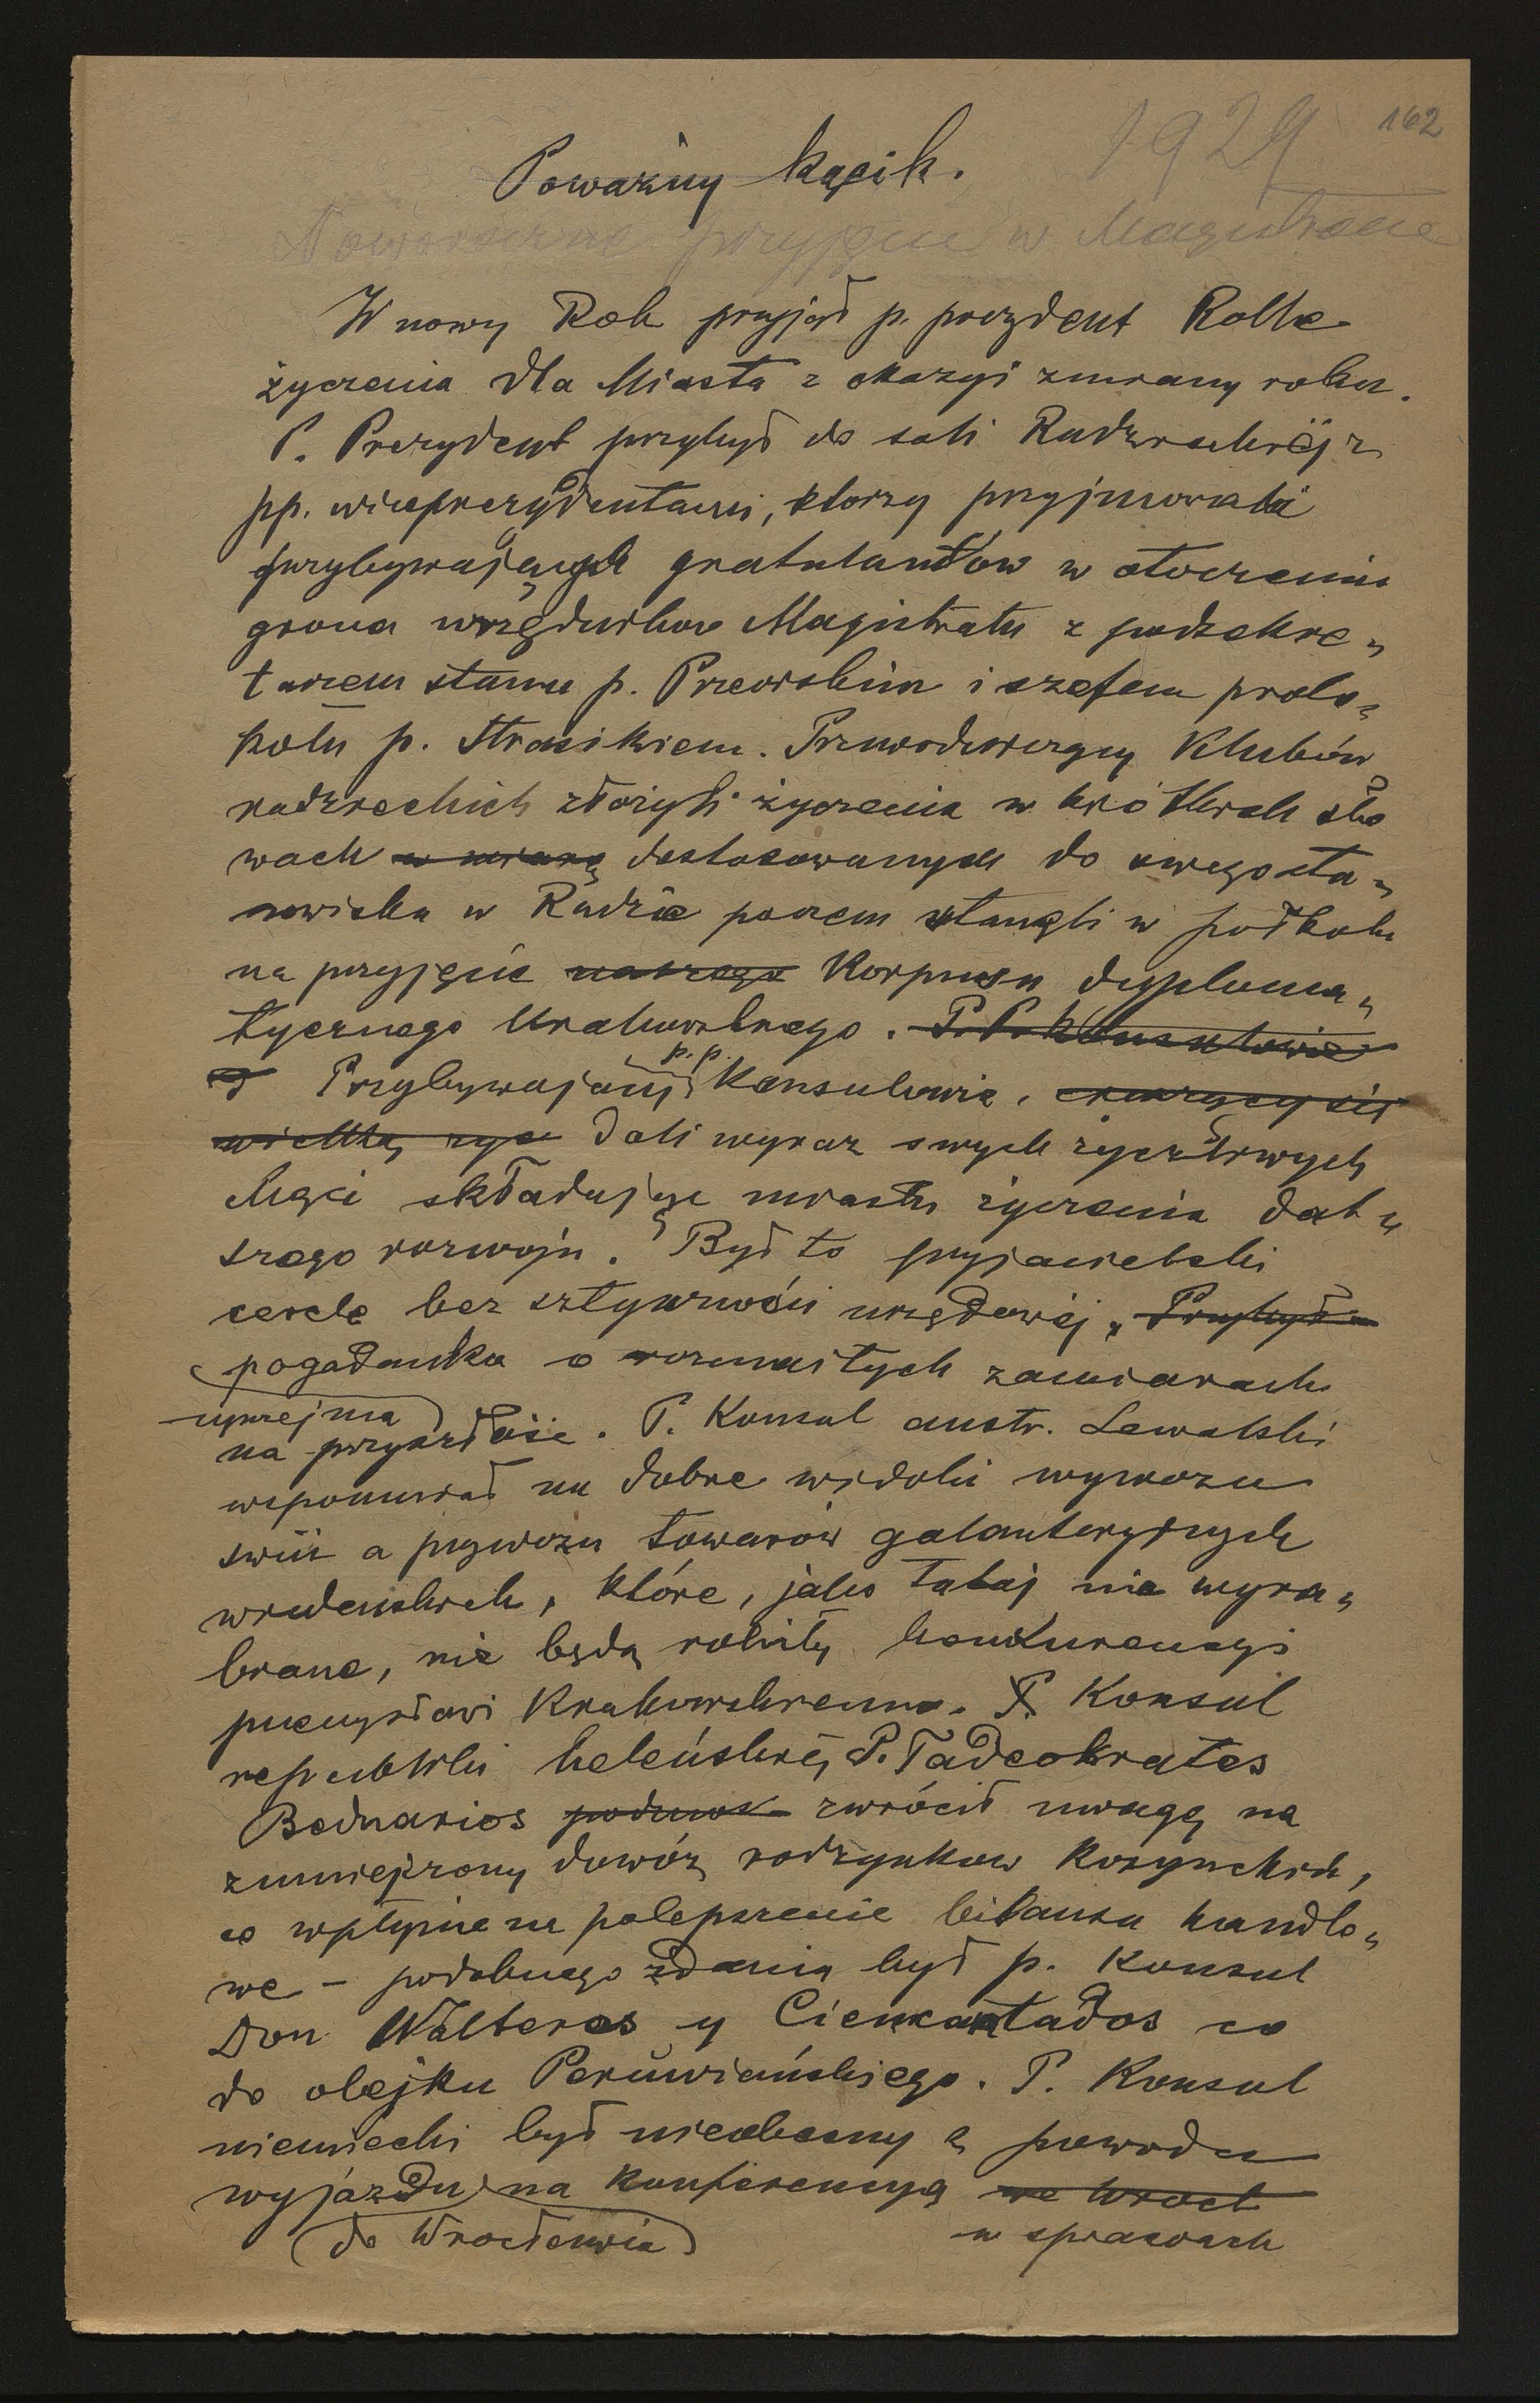 162
1929
Poważny kącik.
Noworoczne przyjęcie w Magistracie
W nowy Rok przyjął p. prezydent Rolle
życzenia dla Miasta z okazyi zmiany roku.
P. Prezydent przybył do sali Radzieckiéj z
pp. wiceprezydentami, ktorzy przyjmowali
przybywających gratulantów w otoczeniu
grona urzędników Magistratu z podsekre„
tarzem stanu p. Przeorskim i szefem proto„
kołu p. Strasikiem. Przewodniczący Klubów
radzieckich złożyli życzenia w krótkich sło
wach w miarę dostosowanych do swego sta„
nowiska w Radzie poczem stanęli w półkolu
na przyjęcie Korpusu dyploma„
tycznego krakowskiego. P.P. Konsulowie
Przybywający p.p. Konsulowie,
dali wyraz swych życzliwych
chęci składając miastu życzenia dal„
szego rozwoju. Był to przyjacielski
cercle bez sztywności urzędowéj, Przybył
pogadanka o rozmaitych zamiarach
uprzejma
na przyszłość. P. Konsul austr. Lewalski
wspomniał na dobre widoki wywozu
świń a przywozu towarów galanteryjnych
wiedeńskich, które, jako tutaj nie wyra„
biane, nie będą robiły konkurencyi
przemysłowi Krakowskiemu. P. Konsul
republiki heleńskiéj P. Tadeokrates
Bednarios zwrócił uwagę na
zmniejszony dowóz rodzynkow Korynckich,
co wpłynie na polepszenie bilansu handlo„
we – podobnego zdania był p. Konsul
Don Walteros y Cienkantados co
do olejku Peruwiańskiego. P. Konsul
niemiecki był nieobecny z powodu
wyjazdu na konferencyą we Wrocł
do Wrocławia
w sprawach